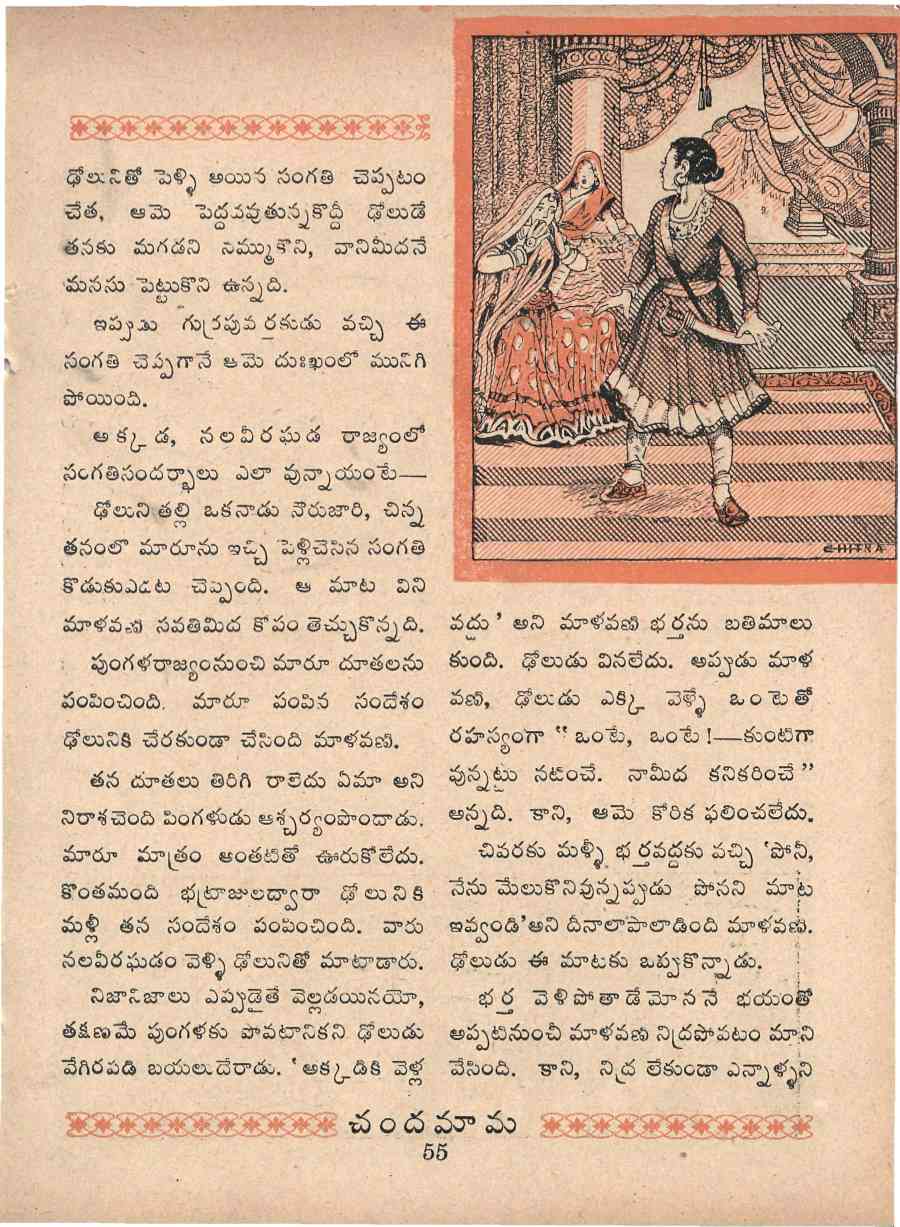 ఢోలునితో పెళ్ళి అయిన సంగతి చెప్పటం
చేత, ఆమె పెద్దవవుతున్నకొద్దీ ఢోలుడే
తనకు మగడని నమ్ముకొని, వానిమీదనే
మనసు పెట్టుకొని ఉన్నది.
ఇప్పుడు గుర్రపువర్తకుడు వచ్చి ఈ
సంగతి చెప్పగానే ఆమె దుఃఖంలో మునిగి
పోయింది.
అక్కడ, నలవీరఘడ రాజ్యంలో
సంగతిసందర్భాలు ఎలా వున్నాయంటే—
ఢోలుని తల్లి ఒకనాడు నోరుజారి, చిన్న
తనంలో మారూను ఇచ్చి పెళ్లిచేసిన సంగతి
కొడుకుఎదట చెప్పింది. ఆ మాట విని
మాళవణి సవతిమీద కోపం తెచ్చుకొన్నది.
పుంగళరాజ్యంనుంచి మారూ దూతలను
పంపించింది. మారూ పంపిన సందేశం
ఢోలునికి చేరకుండా చేసింది మాళవణి.
తన దూతలు తిరిగి రాలేదు ఏమా అని
నిరాశచెంది పింగళుడు ఆశ్చర్యంపొందాడు.
మారూ మాత్రం అంతటితో ఊరుకోలేదు.
కొంతమంది భట్రాజులద్వారా ఢోలునికి
మళ్లీ తన సందేశం పంపించింది. వారు
నలవీరఘడం వెళ్ళి ఢోలునితో మాటాడారు.
నిజానిజాలు ఎప్పుడైతే వెల్లడయినయో,
తక్షణమే పుంగళకు పోవటానికని ఢోలుడు
వేగిరపడి బయలుదేరాడు. 'అక్కడికి వెళ్ల
CHITRA
వద్దు' అని మాళవణి భర్తను బతిమాలు
కుంది. ఢోలుడు వినలేదు. అప్పుడు మాళ
వణి, ఢోలుడు ఎక్కి వెళ్ళే ఒంటెతో
రహస్యంగా "ఒంటే, ఒంటే!—కుంటిగా
వున్నట్టు నటించే. నామీద కనికరించే"
అన్నది. కాని, ఆమె కోరిక ఫలించలేదు.
చివరకు మళ్ళీ భర్తవద్దకు వచ్చి 'పోనీ,
నేను మేలుకొనివున్నప్పుడు పోనని మాట
ఇవ్వండి'అని దీనాలాపాలాడింది మాళవణి.
ఢోలుడు ఈ మాటకు ఒప్పుకొన్నాడు.
భర్త వెళిపోతాడేమోననే భయంతో
అప్పటినుంచీ మాళవణి నిద్రపోవటం మాని
వేసింది. కాని, నిద్ర లేకుండా ఎన్నాళ్ళని
చందమామ
55